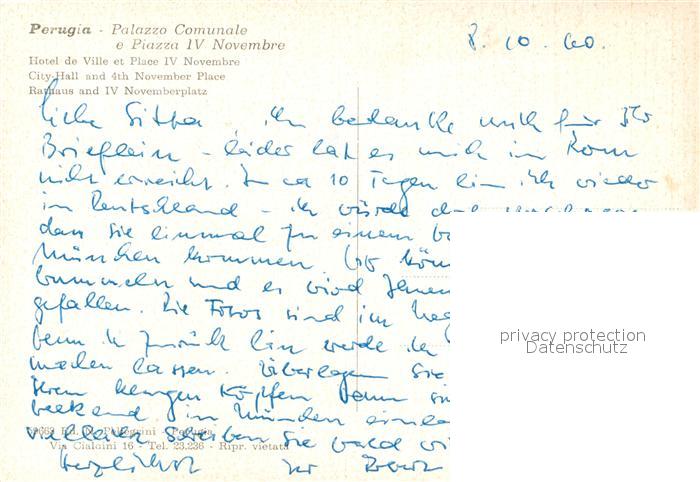 Perugia - Palazzo Comunale
e Piazza IV Novembre
8. 10. 60.
Hotel de Ville et Place IV Novembre
City-Hall and 4th November Place
Rathaus and IV Novemberplatz
Liebe Gitta ich bedanke mich für Ihr
Brieflein – leider hat es mich in Rom
nicht erreicht. In ca 10 Tagen bin ich wieder
in Deutschland – ich würde
dass Sie einmal zu einem
München kommen. Wir
bummeln und es wird Ihnen
gefallen. Die Fotos sind im
wenn ich zurück bin werde ich
machen lassen. Überlegen Sie
Ihrem klugen Köpfchen wann
in München
vielleicht schreiben Sie bald
Ed. Pellegrini - Perugia
Via Cialdini 16 - Tel. 23.236 - Ripr. vietata
herzlichst Ihr
privacy protection
Datenschutz